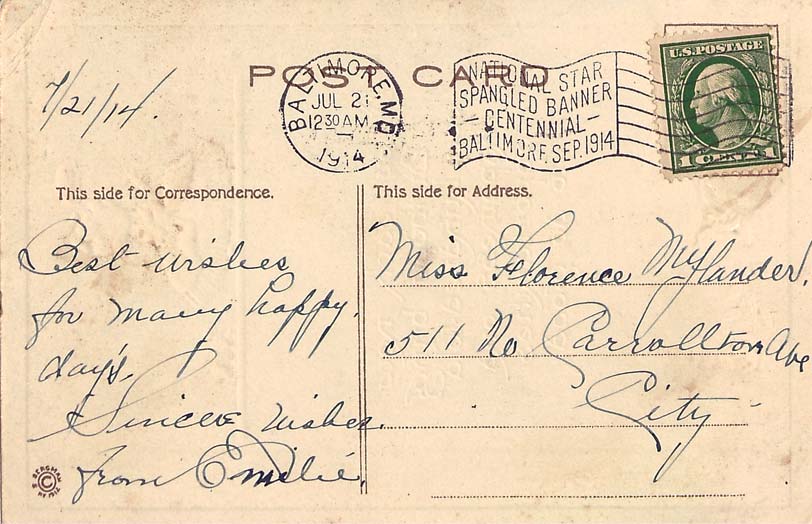 POST CARD
7/21/14.
BALTIMORE, MD.
JUL 21
12 30 AM
1914
NATIONAL STAR
SPANGLED BANNER
— CENTENNIAL —
BALTIMORE, SEP. 1914
U.S. POSTAGE
1 CENT 1
This side for Correspondence.
This side for Address.
Best wishes
for many happy
days.
Sincere wishes
from Emilie.
Miss Florence Mylander,
511 No Carrollton Ave
City
S BERGMAN
© NY 1912